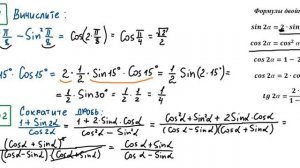 Вычислите:
π/8 - Sin² π/8 = Cos(2·π/8) = Cos π/4 = √2/2
15° Cos15° = 2·1/2·Sin15°·Cos15° = 1/2 Sin(2·15°) =
= 1/2·Sin30° = 1/2·1/2 = 1/4
Сократите дробь:
1+Sin2α / Cos2α = 1+2·Sinα·Cosα / Cos²α-Sin²α = Cos²α+Sin²α+2Sinα·Cosα / (Cosα-Sinα)(Cosα+Sinα) =
(Cosα+Sinα)² / (Cosα-Sinα)·(Cosα+Sinα) = Cosα+Sinα / Cosα-Sinα
Формулы двойн
sin 2α = 2 · sin
cos 2α = cos² α
cos 2α = 1 - 2
cos 2α = 2
tg 2α = 2